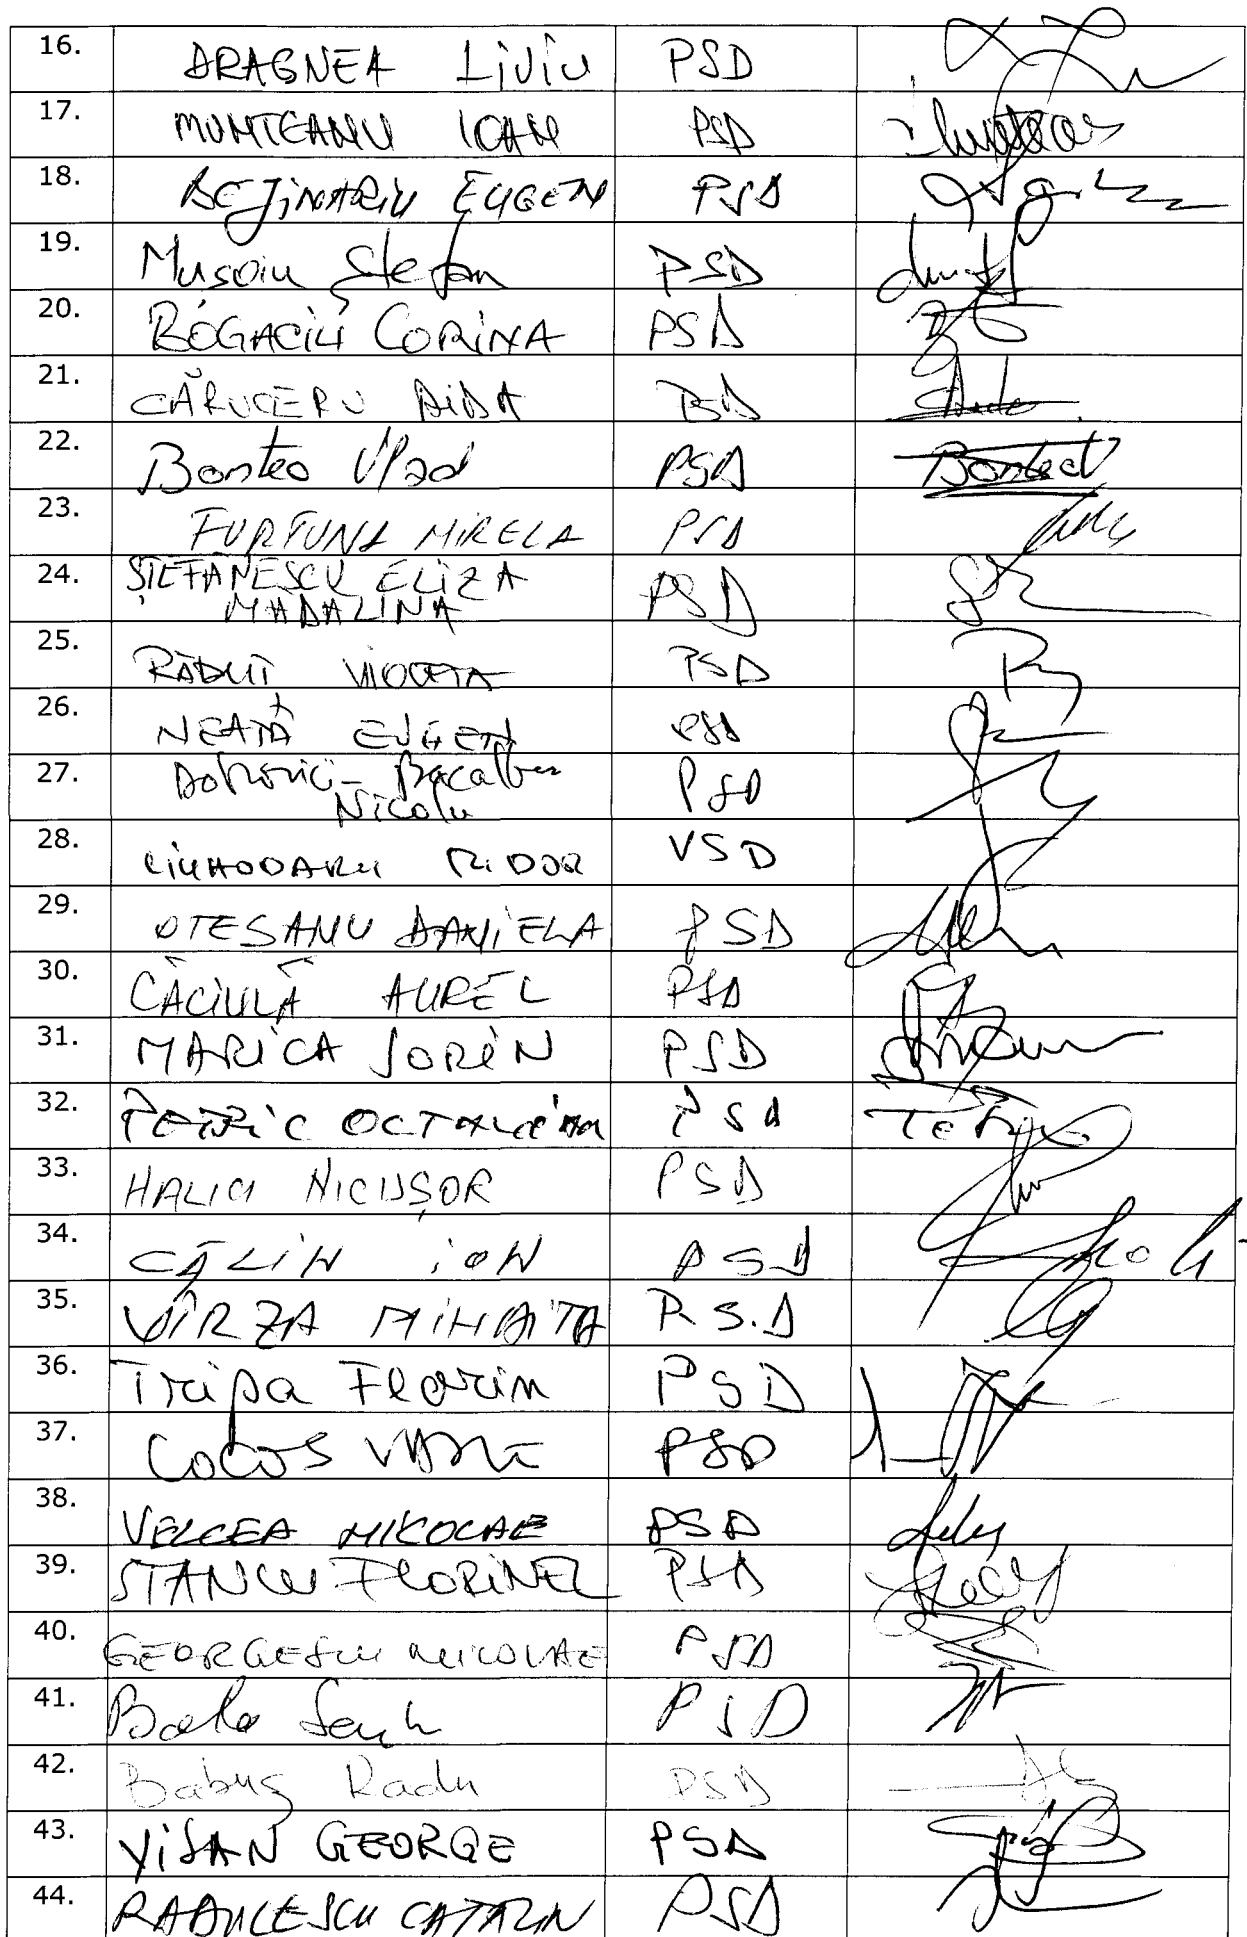 16. DRAGNEA LiViu PSD
17. MUNTEANU IOAN PSD
18. BEJiNARiU EUGEN PSD
19. Musoiu Stefan PSD
20. BOGACIU CORiNA PSD
21. CĂRUCERU AiDA PSD
22. Bontea Vlad PSD Bontea
23. FURTUNĂ MIRELA PSD
24. ȘTEFĂNESCU ELiZA
MADALINA PSD
25. RĂDUȚ VIOLETA PSD
26. NEAȚĂ EUGEN PSD
27. Dobrovici-Bacalbașa
Nicolae PSD
28. CiUHODARU TUDOR PSD
29. OTESANU DANiELA PSD
30. CĂCIULĂ AUREL PSD
31. MARiCA SORiN PSD
32. PETRiC OCTAViAN PSD
33. HALICI NICUȘOR PSD
34. CĂLiN iON PSD
35. VÎRZA MiHĂiȚĂ P.S.D
36. Tripa Florin PSD
37. Cocoș VASILE PSD
38. VELCEA NICOLAE PSD
39. STANCIU FLORiNEL PSD
40. GEORGESCU NICOLAE PSD
41. PSD
42. Babuș Radu PSD
43. ViȘAN GEORGE PSD
44. RADULESCU CATALIN PSD